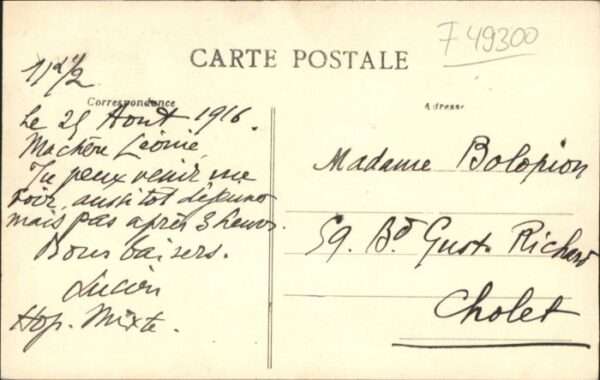 F 49300
CARTE POSTALE
11h 1/2
Correspondance
Adresse
Le 25 Août 1916.
Ma chère Léonie,
Tu peux venir me
voir, aussitôt déjeuner
mais pas après 3 heures.
Bons baisers.
Lucien
Hop. Mixte.
Madame Bolopion
59. Bd Gust. Richard
Cholet